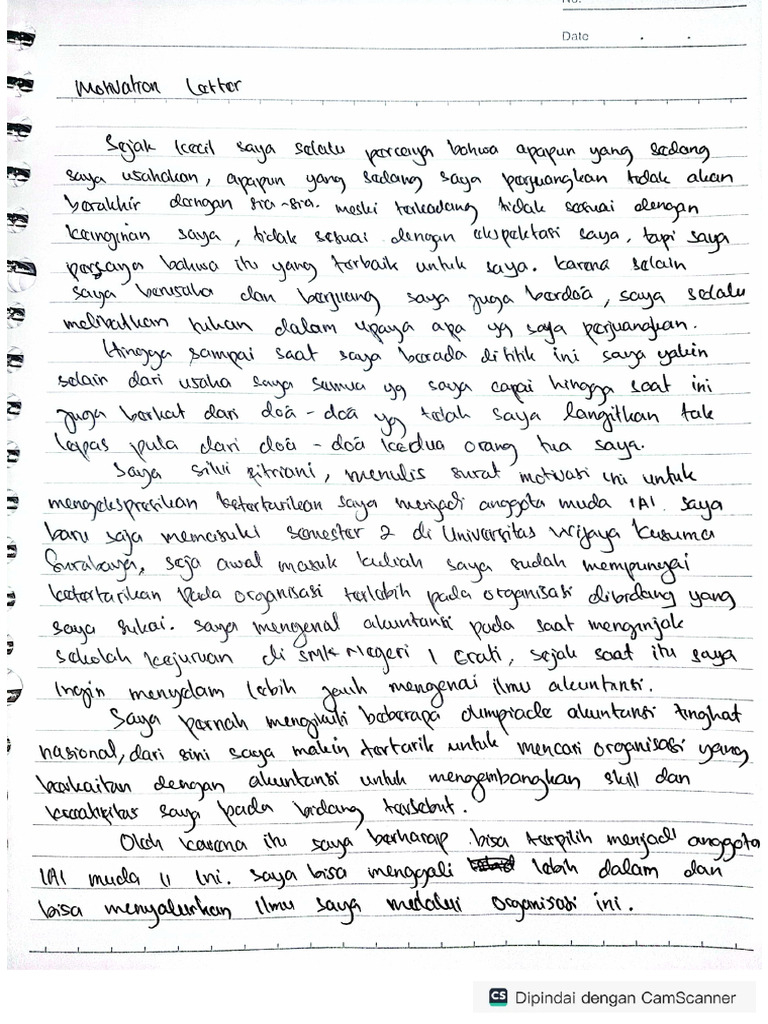 No.
Date
Motivation Letter
Sejak kecil saya selalu percaya bahwa apapun yang sedang
saya usahakan, apapun yang sedang saya perjuangkan tidak akan
berakhir dengan sia-sia. meski terkadang tidak sesuai dengan
keinginan saya, tidak sesuai dengan ekspektasi saya, tapi saya
percaya bahwa itu yang terbaik untuk saya. karena selain
saya berusaha dan berjuang saya juga berdoa, saya selalu
melibatkan tuhan dalam upaya apa yg saya perjuangkan.
Hingga sampai saat saya berada dititik ini saya yakin
selain dari usaha saya semua yg saya capai hingga saat ini
juga berkat dari doa - doa yg telah saya langitkan tak
lepas pula dari doa - doa kedua orang tua saya.
Saya Silvi Fitriani, menulis surat motivasi ini untuk
mengekspresikan ketertarikan saya menjadi anggota muda IAI. saya
baru saja memasuki semester 2 di Universitas Wijaya Kusuma
Surabaya, seja awal masuk kuliah saya sudah mempunyai
ketertarikan pada organisasi terlebih pada organisasi dibidang yang
saya sukai. saya mengenal akuntansi pada saat menginjak
sekolah kejuruan di SMK Negeri 1 Grati, sejak saat itu saya
ingin menyelam lebih jauh mengenai ilmu akuntansi.
Saya pernah mengikuti beberapa olimpiade akuntansi tingkat
nasional, dari sini saya makin tertarik untuk mencari organisasi yang
berkaitan dengan akuntansi untuk mengembangkan skill dan
kreatifitas saya pada bidang tersebut.
Oleh karena itu saya berharap bisa terpilih menjadi anggota
IAI muda 11 ini. saya bisa menggali lebih dalam dan
bisa menyalurkan ilmu saya melalui organisasi ini.
CS Dipindai dengan CamScanner